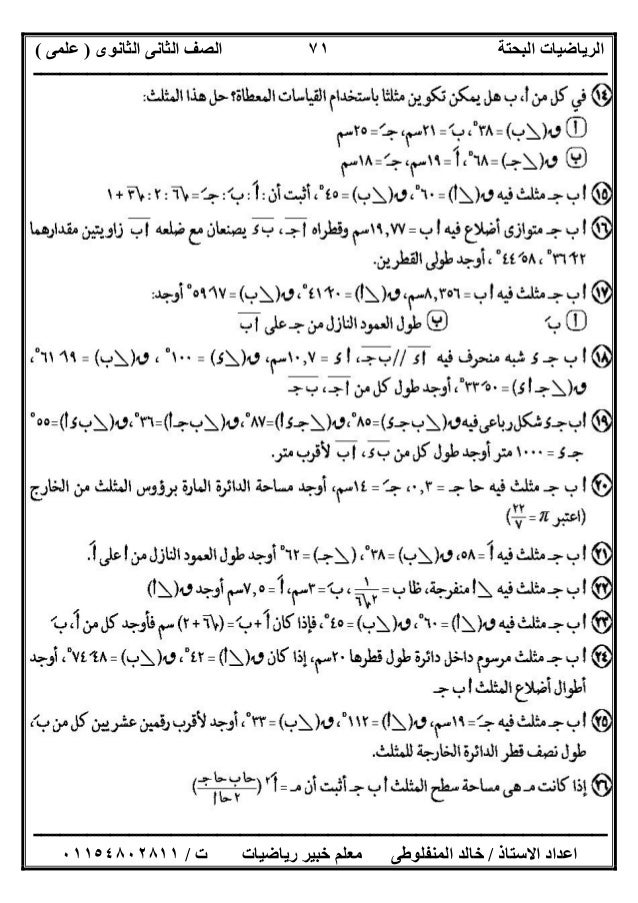 الرياضيات البحتة ٧١ الصف الثانى الثانوى ( علمى )
١٤ في كل من أ، ب هل يمكن تكوين مثلثا باستخدام القياسات المعطاة؟ حل هذا المثلث:
أ ق(∠ب) = ٣٨°، بَ = ٢١سم، جـَ = ٢٥سم
ب ق(∠جـ) = ٦٨°، أَ = ١٩سم، جـَ = ١٨سم
١٥ أ ب جـ مثلث فيه ق(∠أ) = ٦٠°، ق(∠ب) = ٤٥°، أثبت أن : أَ : بَ : جـَ = √٦ : ٢ : √٣ + ١
١٦ أ ب جـ متوازى أضلاع فيه أ ب = ١٩,٧٧سم وقطراه أجـ، بء يصنعان مع ضلعه أب زاويتين مقدارهما
٢٢ َ٣٦°، ٥٨ َ٤٤°، أوجد طولى القطرين.
١٧ أ ب جـ مثلث فيه أ ب = ٨,٣٥٦سم، ق(∠أ) = ٢٠ َ٤١°، ق(∠ب) = ١٧ َ٥٩° أوجد:
أ بَ ب طول العمود النازل من جـ على أب
١٨ أ ب جـ ء شبه منحرف فيه أء // بجـ، أ ء = ١٠,٧سم، ق(∠ء) = ١٠٠°، ق(∠ب) = ١٩ َ٦١°،
ق(∠جـ أ ء) = ٥٠ َ٣٣°، أوجد طول كل من أجـ، بجـ
١٩ أ ب جـ ء شكل رباعى فيه ق(∠ب جـ ء) = ٨٥°، ق(∠جـ ء أ) = ٨٧°، ق(∠ب جـ أ) = ٣٦°، ق(∠ب ء أ) = ٥٥°
جـ ء = ١٠٠٠ متر أوجد طول كل من بء، أب لأقرب متر.
٢٠ أ ب جـ مثلث فيه حا جـ = ٠,٣، جـَ = ١٤سم، أوجد مساحة الدائرة المارة برؤوس المثلث من الخارج
(اعتبر π = ٢٢/٧)
٢١ أ ب جـ مثلث فيه أَ = ٥٨، ق(∠ب) = ٣٨°، (∠جـ) = ٦٢° أوجد طول العمود النازل من أ على أَ.
٢٢ أ ب جـ مثلث فيه ∠أ منفرجة، ظا ب = ١/٢√٦، بَ = ٣سم، أَ = ٧,٥سم أوجد ق(∠أ)
٢٣ أ ب جـ مثلث فيه ق(∠أ) = ٦٠°، ق(∠ب) = ٤٥°، فإذا كان أَ + بَ = (√٦ + ٢) سم فأوجد كل من أَ، بَ
٢٤ أ ب جـ مثلث مرسوم داخل دائرة طول قطرها ٢٠سم، إذا كان ق(∠أ) = ٤٢°، ق(∠ب) = ٤٨ َ٧٤°، أوجد
أطوال أضلاع المثلث أ ب جـ
٢٥ أ ب جـ مثلث فيه جـَ = ١٩سم، ق(∠أ) = ١١٢°، ق(∠ب) = ٣٣°، أوجد لأقرب رقمين عشريين كل من بَ،
طول نصف قطر الدائرة الخارجة للمثلث.
٢٦ إذا كانت مـ هى مساحة سطح المثلث أ ب جـ أثبت أن مـ = أَ٢ (حا ب حا جـ / ٢ حا أ)
اعداد الاستاذ / خالد المنفلوطى معلم خبير رياضيات ت / ٠١١٥٤٨٠٢٨١١